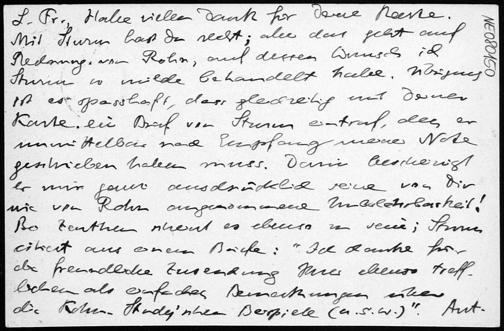 L. Fr., Habe vielen Dank für Deine Karte.
Mit Sturm hast Du recht; aber das geht auf
Rechnung von Rohn, auf dessen Wunsch ich
Sturm so milde behandelt habe. Übrigens
ist es spasshaft, dass gleichzeitig mit Deiner
Karte ein Brief von Sturm eintraf, den er
unmittelbar nach Empfang meiner Note
geschrieben haben muss. Darin bescheinigt
er mir ganz ausdrücklich seine von Dir
wie von Rohn angenommene Unbelehrbarkeit!
Bei Zeuthen scheint es ebenso zu sein; Sturm
citiert aus einem Briefe: "Ich danke für
die freundliche Zusendung Ihrer ebenso treff-
lichen als einfachen Bemerkungen über
die Rohn-Study'schen Beispiele (u.s.w.)".
NE080150